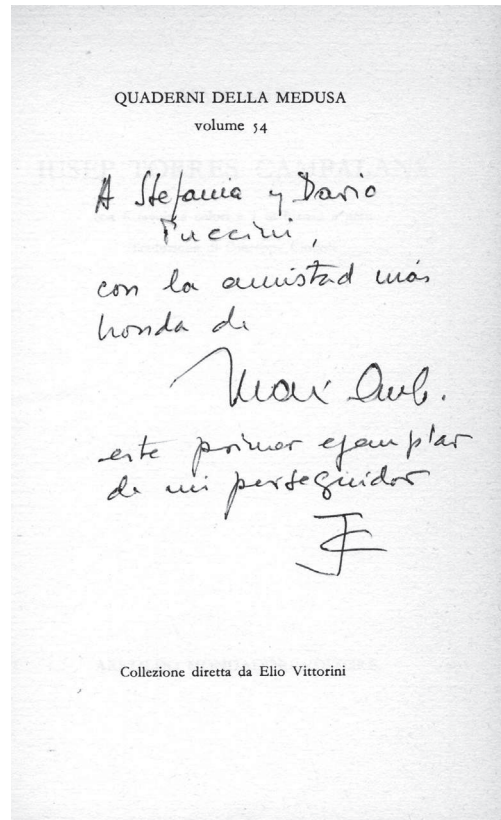 QUADERNI DELLA MEDUSA
volume 54
JUSEP TORRES CAMPALANS
A Stefania y Dario
Puccini,
con la amistad más
honda de
Max Aub.
este primer ejemplar
de mi perseguidor
Collezione diretta da Elio Vittorini